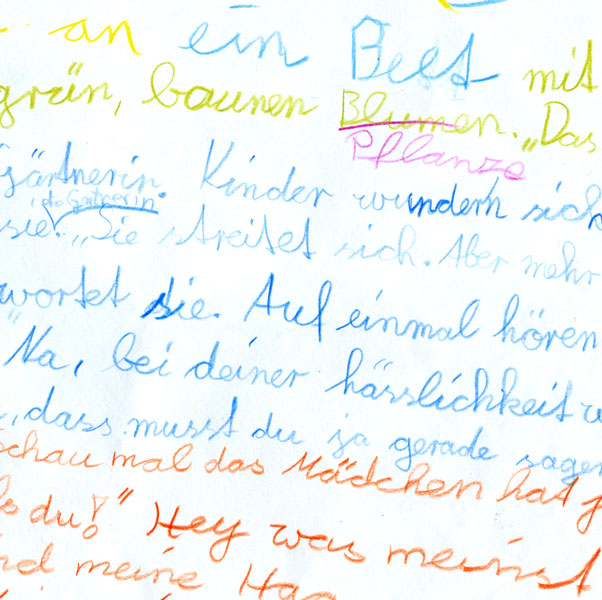 an ein Beet mit
grün, baunen Blumen. „Das
Pflanze
gärtnerin. Kinder wundern sich
die Gärtnerin
sie. „Sie streitet sich. Aber mehr
wortet sie. Auf einmal hören
"Na, bei deiner hässlichkeit
„dass musst du ja gerade sagen
Schau mal das Mädchen hat
du!" Hey was meinst
meine